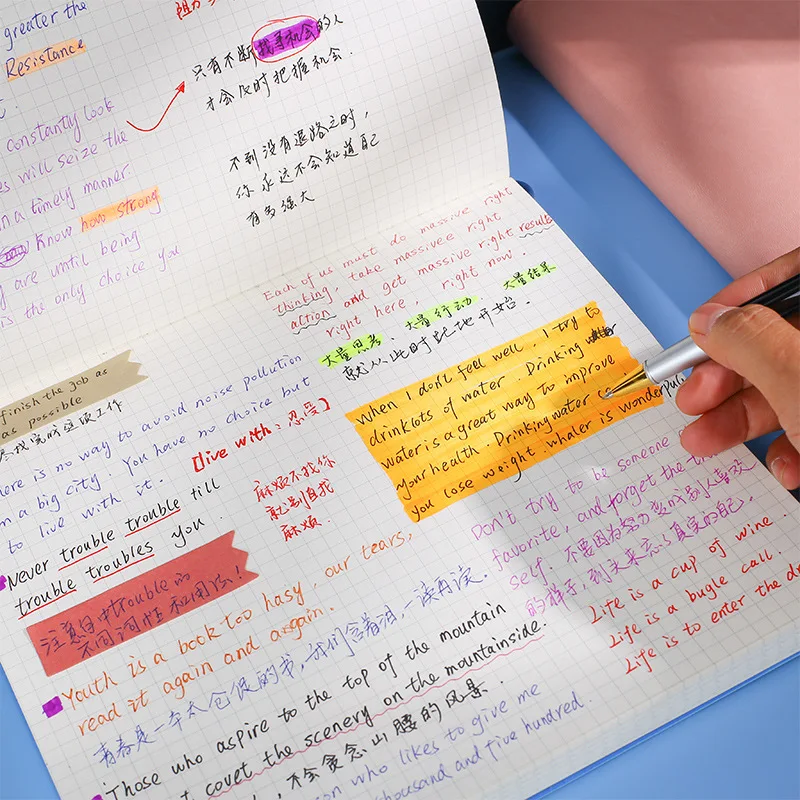 greater the
Resistance
constantly look
es will seize the
in a timely manner.
know how strong
y are until being
is the only choice you
只有不断找寻机会的人
才会及时把握机会.
不到没有退路之时,
你永远不会知道自己
有多强大
Each of us must do massive right
thinking, take massivee right
action and get massive right results
right here, right now.
大量思考. 大量行动 大量结果
就从此时此地开始.
finish the job as
as possible
成这项工作
here is no way to avoid noise pollution
in a big city. You have no choice but
to live with it.
【live with: 忍受】
Never trouble trouble till
trouble troubles you.
麻烦不找你
就别自找
麻烦.
注意句中trouble的
不同词性和用法!
When I don't feel well, I try to
drink lots of water. Drinking
water is a great way to improve
your health. Drinking water
you lose weight. whaler is wonder
Don't try to be someone
favorite, and forget the
self. 不要因为努力变成别人喜欢
的样子,到头来忘了真实的自己.
Youth is a book too hasy, our tears,
read it again and azgain.
青春是一本太仓促的书,我们含着泪,一读再读.
Those who aspire to the top of the mountain
t covet the scenery on the mountainside.
,不会贪念山腰的风景.
on who likes to give me
thousand and five hundred.
Life is a cup of wine
Life is a bugle call.
Life is to enter the